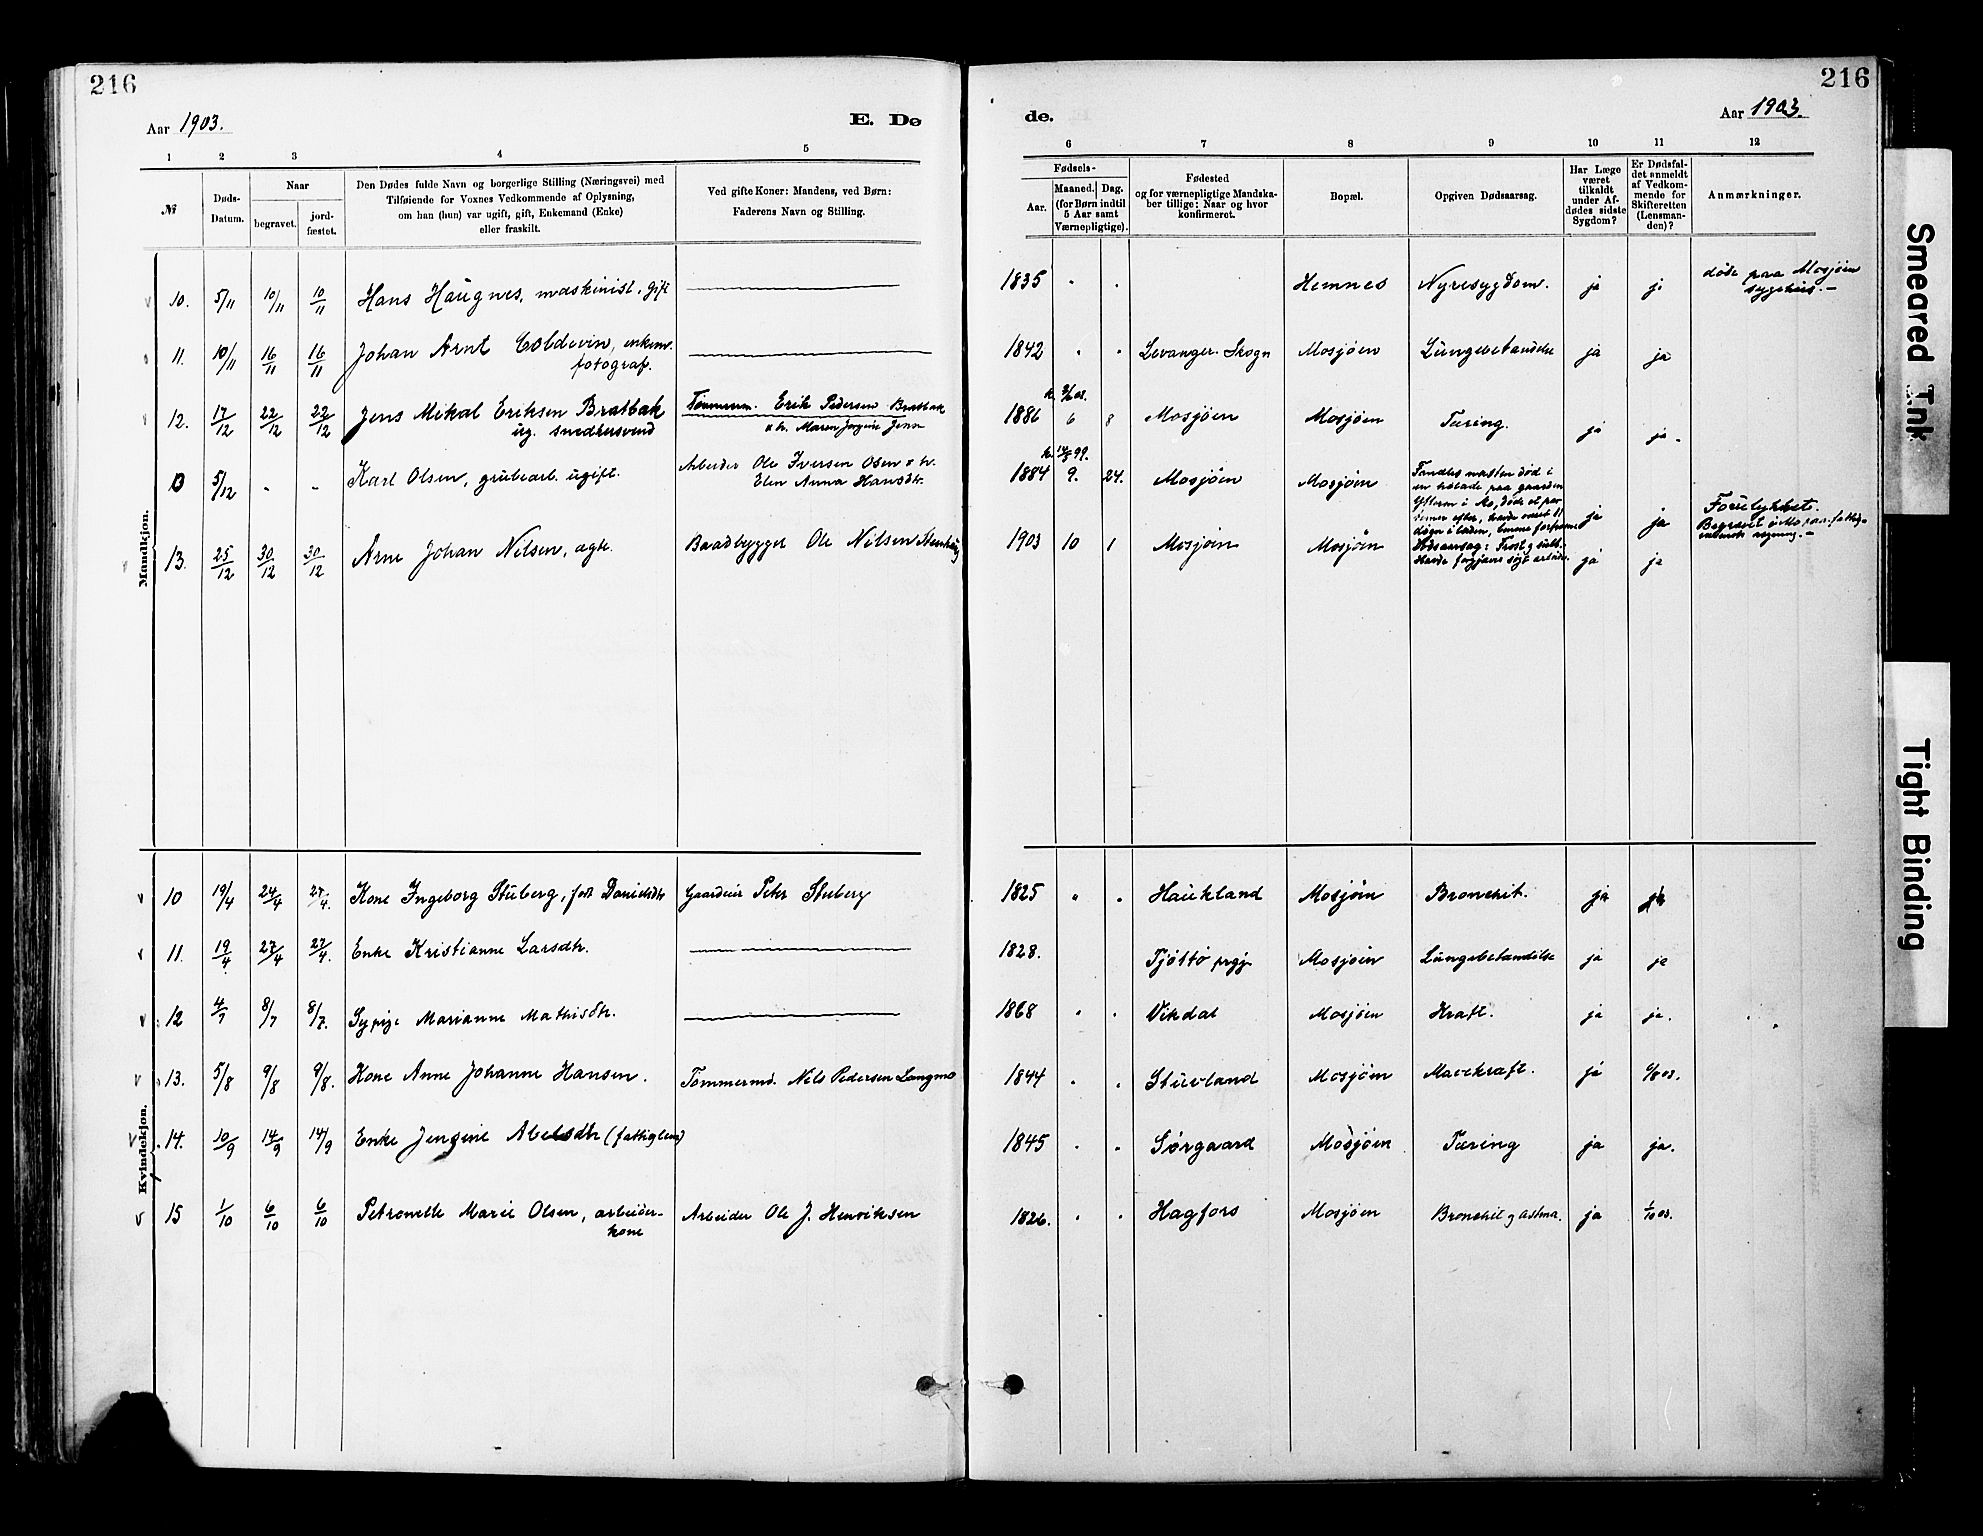 216
Aar 1903.
E. Dø
1 2 3 4 5
№
Døds-
Datum.
Naar
begravet.
jord-
fæstet.
Den Dødes fulde Navn og borgerlige Stilling (Næringsvei) med
Tilføiende for Voxnes Vedkommende af Oplysning,
om han (hun) var ugift, gift, Enkemand (Enke)
eller fraskilt.
Ved gifte Koner: Mandens, ved Børn:
Faderens Navn og Stilling.
Mandkjøn.
10. 5/11 10/11 10/11 Hans Haugnes, maskinist, gift
11. 10/11 16/11 16/11 Johan Arnt Coldevin, enkem.
fotograf.
12. 17/12 22/12 22/12 Jens Mikal Eriksen Bratbak Tømmerm. Erik Pedersen Bratbak
ug. snedkersvend & h. Maren Jensd
5/12 - - Karl Olsen, grubearb. ugift. Arbeider Ole Iversen Olsen & h.
Elen Anna Hansdtr.
13. 25/12 30/12 30/12 Arne Johan Nilsen, ægte. Baadbygger Ole Nilsen
Kvindekjøn.
10 19/4 24/4 27/4. Kone Ingeborg Stuberg, født Danielsdtr Gaardeier Peter Stuberg
11. 19/4 27/4 27/4. Enke Kristianne Larsdtr.
12 4/7 8/7 8/7. Sypige Marianne Mathisdtr.
13. 5/8 9/8 9/8. Kone Anne Johanne Hansen. Tømmermd. Nils Pedersen Langmo
14. 10/9 14/9 14/9 Enke Jensine Abelsdtr (fattiglem)
15 1/10 6/10 6/10 Petronelle Marie Olsen, arbeider-
kone
Arbeider Ole J. Henriksen
216
de.
Aar 1903.
6 7 8 9 10 11 12
Fødsels-
Aar.
Maaned. Dag.
(for Børn indtil
5 Aar samt
Værnepligtige).
Fødested
og for værnepligtige Mandska-
ber tillige: Naar og hvor
konfirmeret.
Bopæl.
Opgiven Dødsaarsag.
Har Læge
været
tilkaldt
under Af-
dødes sidste
Sygdom?
Er Dødsfal-
det anmeldt
af Vedkom-
mende for
Skifteretten
(Lensman-
den)?
Anmærkninger.
1835 " " Hemnes Nyresygdom. ja ja døde paa Mosjøen
sygehus. -
1842 " " Levanger. Skogn Mosjøen Lungebetændelse ja ja
1886 6 8 Mosjøen Mosjøen Tæring. ja ja.
1884 9. 24. Mosjøen Mosjøen Fandtes næsten død i
en hølade paa gaarden
Ytteren i Mo, døde et par
timer efter, havde været 8
døgn i laden, benene forfrosne
Dødsaarsag: Frost og sult.
Havde forgjæves søgt arbeide.
ja ja Forulykket.
Begravet i Mo paa fattig-
væsenets regning. -
1903 10 1 Mosjøen Mosjøen ja ja
1825 " " Haukland Mosjøen Bronchit. ja ja
1828. Tjøttø prgj. Mosjøen Lungebetændelse ja ja
1868 " " Vikdal Mosjøen Kræft. ja ja.
1844 " " Stuvland Mosjøen Mavekræft. ja 6/8 03.
1845 " " Sørgaard Mosjøen Tæring ja ja.
1826. " " Hagfors Mosjøen Bronchit og Astma. ja 1/10 03.
Smeared Ink
Tight Binding